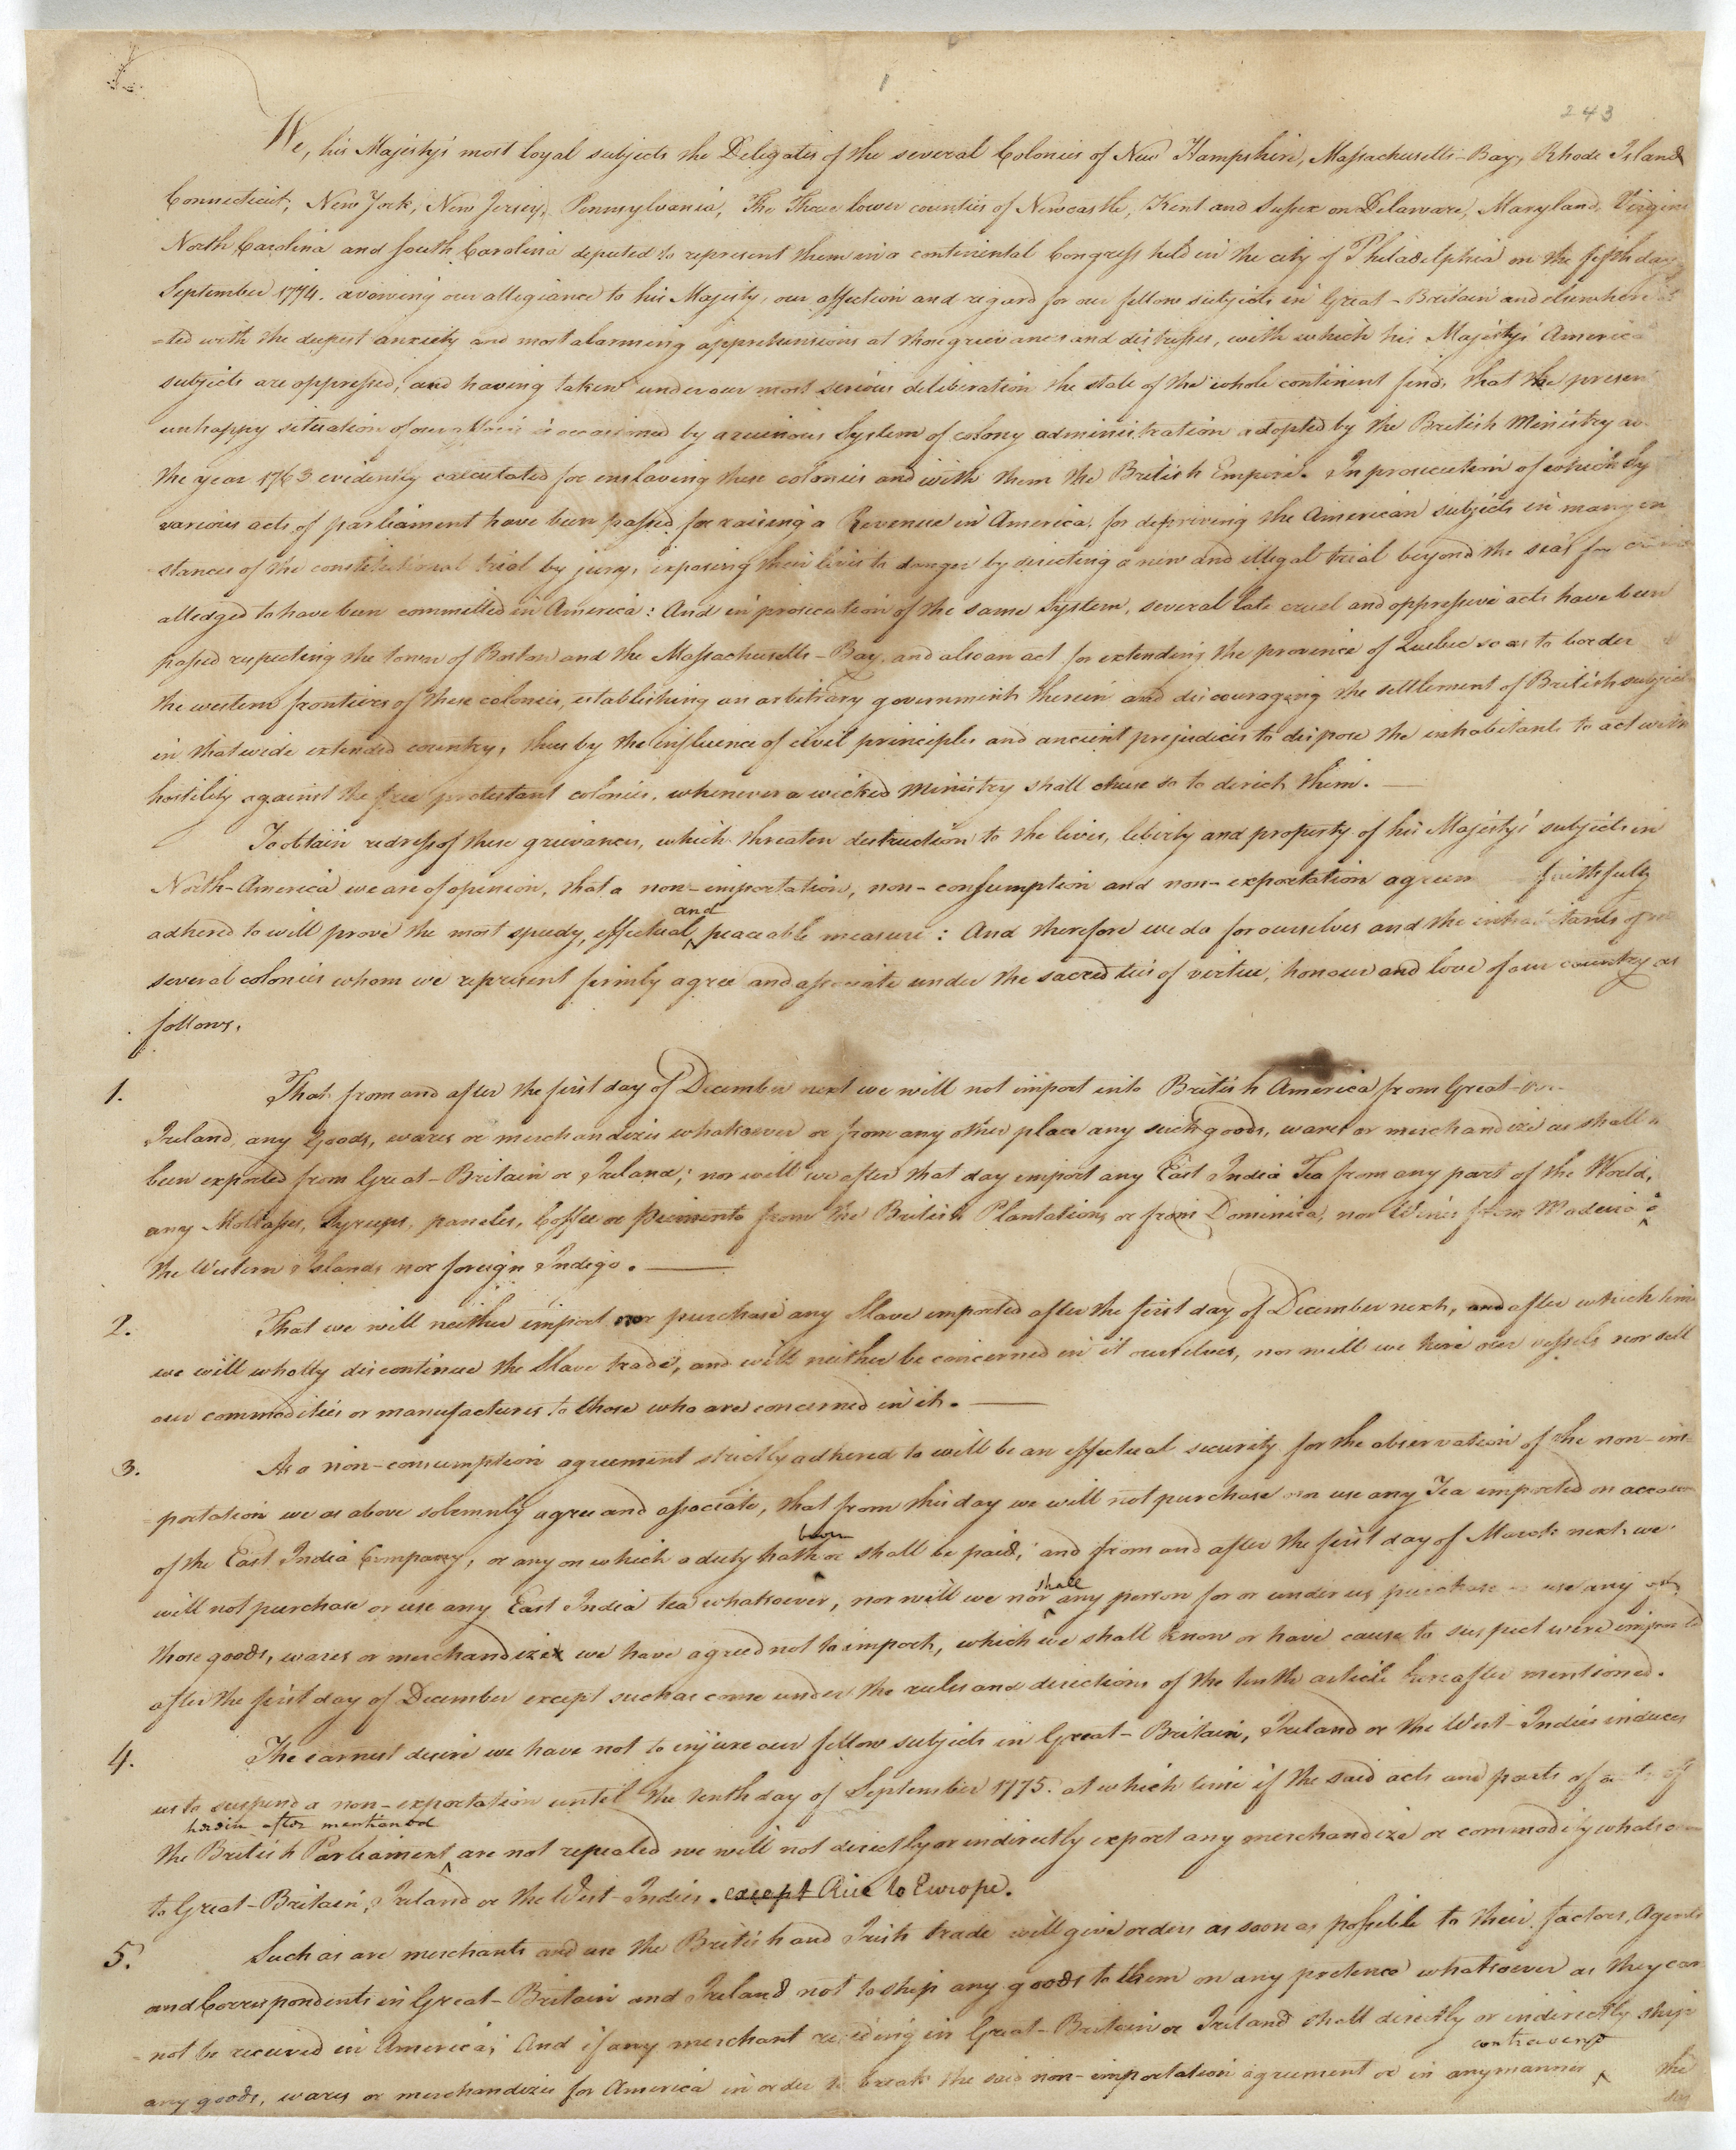 1
243
We, his Majesty's most loyal subjects the Delegates of the several Colonies of New Hampshire, Massachusetts-Bay, Rhode Island
Connecticut, New York, New Jersey, Pennsylvania, The Three lower counties of Newcastle, Kent and Sussex on Delaware, Maryland, Virgini
North Carolina and South Carolina deputed to represent them in a continental Congress held in the city of Philadelphia on the fifth day
September 1774. avowing our allegiance to his Majesty, our affection and regard for our fellow subjects in Great-Britain and elsewhere
-ted with the deepest anxiety and most alarming apprehensions at those grievances and distresses, with which his Majesty's America
subjects are oppressed, and having taken under our most serious deliberation the state of the whole continent find, that the presen
unhappy situation of our affairs is occasioned by a ruinous System of colony administration adopted by the British Ministry a
the year 1763 evidently calculated for enslaving these colonies and with them the British Empire. In prosecution of which Sy
various acts of parliament have been passed for raising a Revenue in America, for depriving the American subjects in many in
stances of the constitutional trial by jury, exposing their lives to danger by directing a new and illegal trial beyond the seas for
alledged to have been committed in America: And in prosecution of the same System, several late cruel and oppressive acts have been
passed respecting the town of Boston and the Massachusetts-Bay, and also an act for extending the province of Quebec so as to border
the western frontiers of these colonies, establishing an arbitrary government therein and discouraging the settlement of British subject
in that wide extended country, thus by the influence of civil principles and ancient prejudices to dispose the inhabitants to act with
hostility against the free protestant colonies, whenever a wicked Ministry shall chuse so to direct them. —
To obtain redress of these grievances, which threaten destruction to the lives, liberty and property of his Majesty's subjects in
North-America we are of opinion, that a non-importation, non-consumption and non-exportation agreem faithfully
and
adhered to will prove the most speedy, effectual ^ peaceable measure: And therefore we do for ourselves and the inhabitants of
several colonies whom we represent firmly agree and associate under the sacred ties of virtue, honour and love of our country as
follows.
1. That from and after the first day of December next we will not import into British America from Great-
Ireland, any Goods, wares or merchandizes whatsoever or from any other place any such goods, wares or merchandize as shall
been exported from Great-Britain or Ireland; nor will we after that day import any East India Tea from any part of the World,
any Molasses, Syrups, paneles, Coffee or Piemento from the British Plantations or from Dominica, nor Wines from Madeira
the Western Islands nor foreign Indigo. —
2. That we will neither import nor purchase any Slave imported after the first day of December next, and after which time
we will wholly discontinue the Slave trade, and will neither be concerned in it ourselves, nor will we hire our vessels nor sell
our commodities or manufactures to those who are concerned in it. —
3. As a non-consumption agreement strictly adhered to will be an effectual security for the observation of the non-im-
portation we as above solemnly agree and associate, that from this day we will not purchase or use any Tea imported on accoun
been
of the East India Company, or any on which a duty hath ^ or shall be paid; and from and after the first day of March next we
shall
will not purchase or use any East India tea whatsoever, nor will we nor ^ any person for or under us purchase or use any of
those goods, wares or merchandize we have agreed not to import, which we shall know or have cause to suspect were imported
after the first day of December except such as come under the rules and directions of the tenth article hereafter mentioned.
4. The earnest desire we have not to injure our fellow subjects in Great-Britain, Ireland or the West-Indies induces
us to suspend a non-exportation until the tenth day of September 1775. at which time if the said acts and parts of acts of
herein after mentioned
the British Parliament ^ are not repealed we will not directly or indirectly export any merchandize or commodity whatsoe
to Great-Britain, Ireland or the West-Indies. except Rice to Europe.
5. Such as are merchants and use the British and Irish trade will give orders as soon as possible to their factors, Agents
and Correspondents in Great-Britain and Ireland not to ship any goods to them on any pretence whatsoever as they can
-not be received in America; And if any merchant residing in Great-Britain or Ireland shall directly or indirectly ship
contravene
any goods, wares or merchandizes for America in order to break the said non-importation agreement or in any manner ^ the